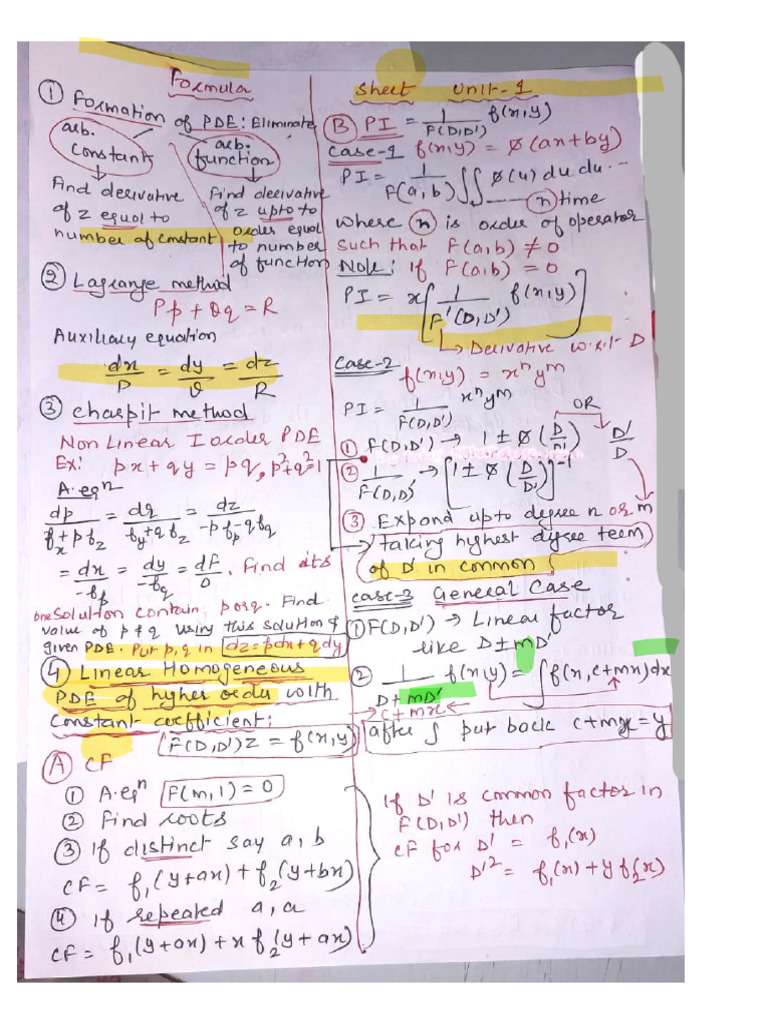 Formula Sheet Unit-1
① Formation of PDE: Eliminate
arb. Constant
arb. function
Find derivative of z equal to number of constant
Find deerivative of z upto to order equal to number of function
② Lagrange method
Pp + Qq = R
Auxiliary equation
dx/P = dy/Q = dz/R
③ Charpit method
Non Linear I order PDE
Ex: px + qy = pq, p²+q²=1
A.eqⁿ
dp/(f_x + p f_z) = dq/(f_y + q f_z) = dz/(-p f_p - q f_q)
= dx/-f_p = dy/-f_q = dF/0 . Find its
one Solution contain p or q. Find
value of p & q using this solution &
given PDE. Put p, q in dz = pdx + qdy
④ Linear Homogeneous
PDE of higher order with
Constant coefficient:
F(D,D')z = f(x,y)
Ⓐ CF
① A.eqⁿ F(m,1) = 0
② Find roots
③ If distinct say a, b
CF = f₁(y+ax) + f₂(y+bx)
④ If repeated a, a
CF = f₁(y+ax) + x f₂(y+ax)
Ⓑ PI = 1/F(D,D') f(x,y)
Case-1 f(x,y) = ϕ(ax+by)
PI = 1/F(a,b) ∫∫ ϕ(u) du du ...
---- ⓝ time
where ⓝ is order of operator
Such that F(a,b) ≠ 0
Note: If F(a,b) = 0
PI = x[1/F'(D,D') f(x,y)]
↳ Derivative w.r.t D
Case-2 f(x,y) = xⁿyᵐ
PI = 1/F(D,D') xⁿyᵐ
① F(D,D') → 1 ± ϕ(D/D') OR D'/D
② 1/F(D,D') → [1 ± ϕ(D/D')]⁻¹
③ Expand upto degree n or m
taking highest degree teem
of D' in common
Case-3 General Case
① F(D,D') → Linear factor
like D ± mD'
② 1/(D+mD') f(x,y) = ∫f(x, c+mx)dx
→ c+mx ←
after ∫ put back c+mx = y
If D' is common factor in
F(D,D') then
CF for D' = f₁(x)
D'² = f₁(x) + y f₂(x)